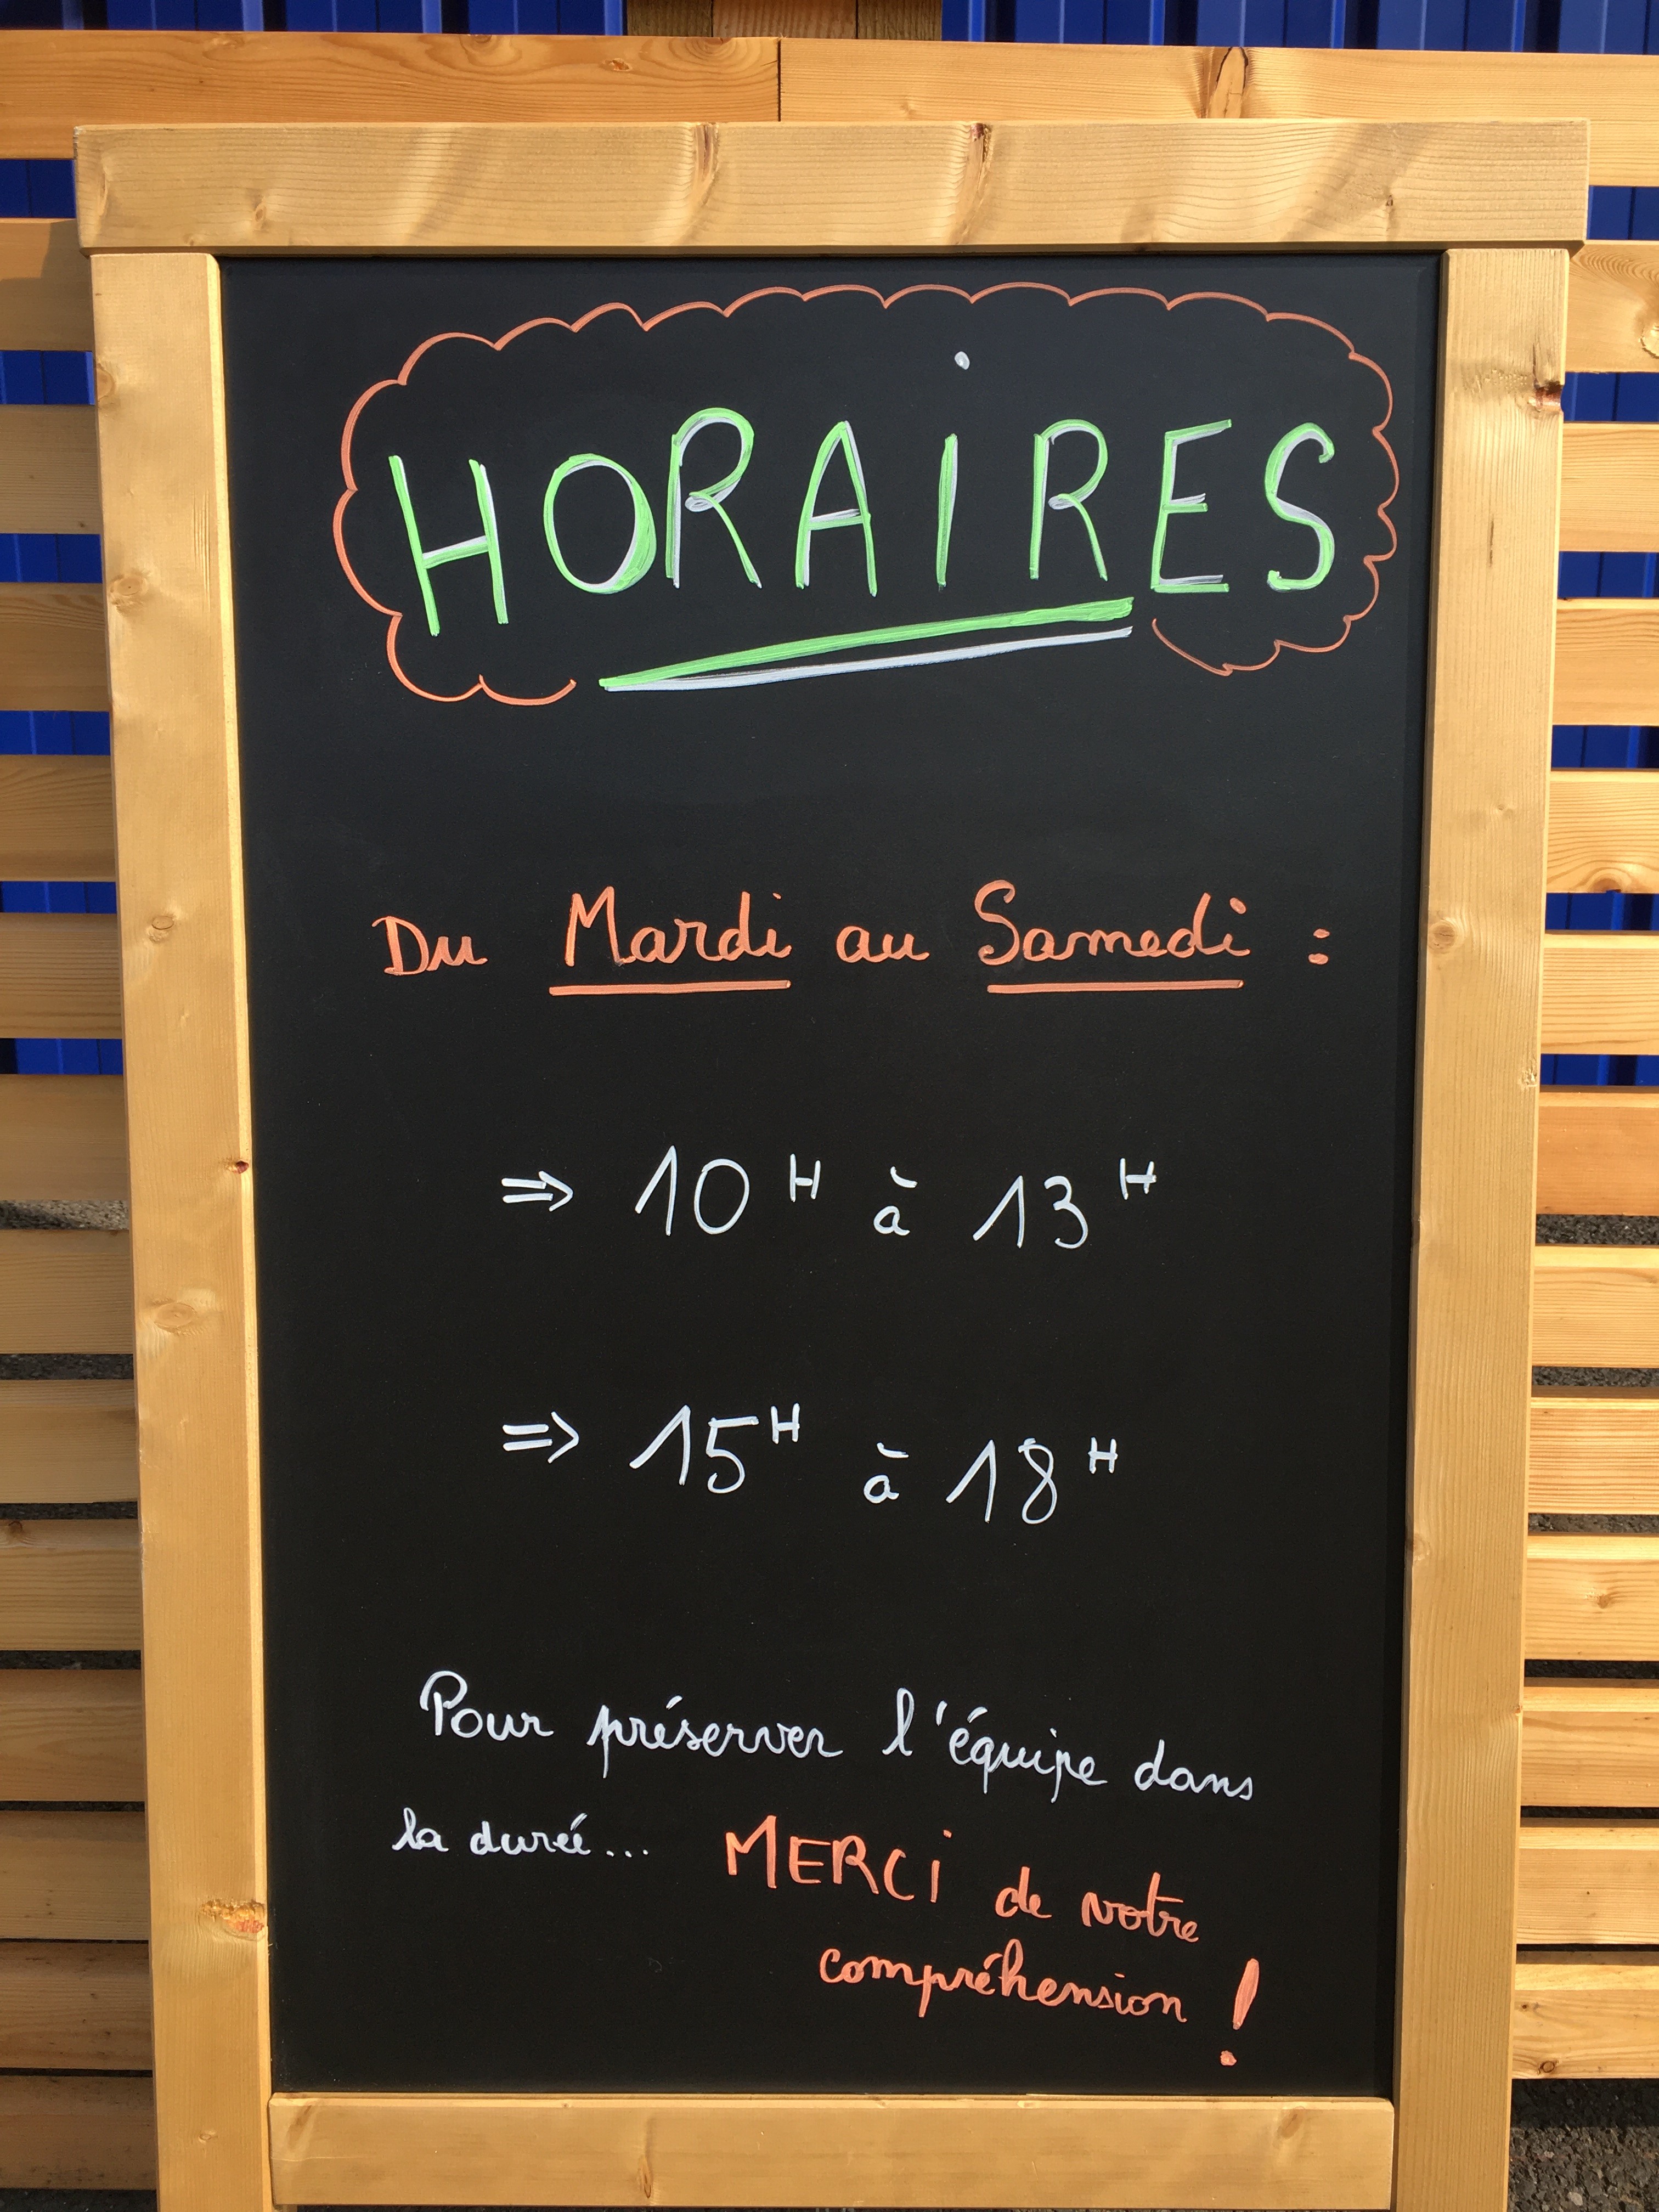 HORAiRES
Du Mardi au Samedi :
⇒ 10H à 13H
⇒ 15H à 18H
Pour préserver l'équipe dans
la durée... MERCi de votre
compréhension !